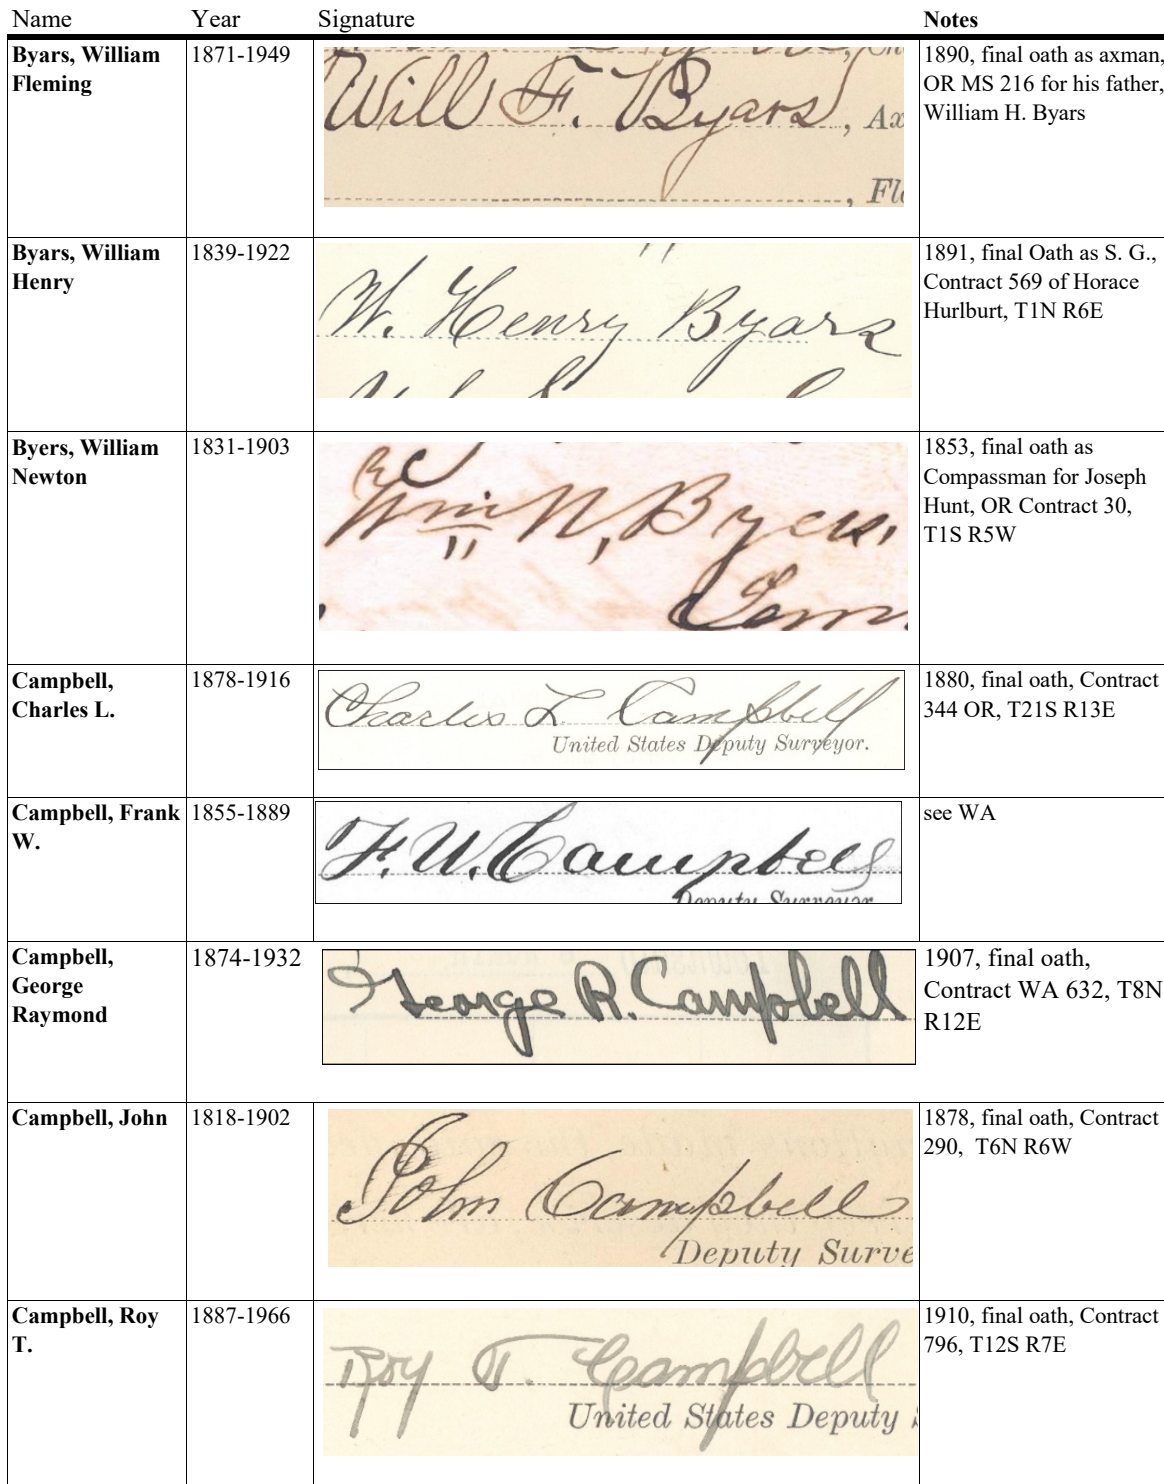 Name Year Signature Notes
Byars, William Fleming 1871-1949 Will F. Byars, Ax 1890, final oath as axman, OR MS 216 for his father, William H. Byars
, Fl
Byars, William Henry 1839-1922 W. Henry Byars 1891, final Oath as S. G., Contract 569 of Horace Hurlburt, T1N R6E
Byers, William Newton 1831-1903 Wm N, Byers, 1853, final oath as Compassman for Joseph Hunt, OR Contract 30, T1S R5W
Com
Campbell, Charles L. 1878-1916 Charles L. Campbell 1880, final oath, Contract 344 OR, T21S R13E
United States Deputy Surveyor.
Campbell, Frank W. 1855-1889 F. W. Campbell see WA
Deputy Surveyor
Campbell, George Raymond 1874-1932 George R. Campbell 1907, final oath, Contract WA 632, T8N R12E
Campbell, John 1818-1902 John Campbell 1878, final oath, Contract 290, T6N R6W
Deputy Surve
Campbell, Roy T. 1887-1966 Roy T. Campbell 1910, final oath, Contract 796, T12S R7E
United States Deputy S